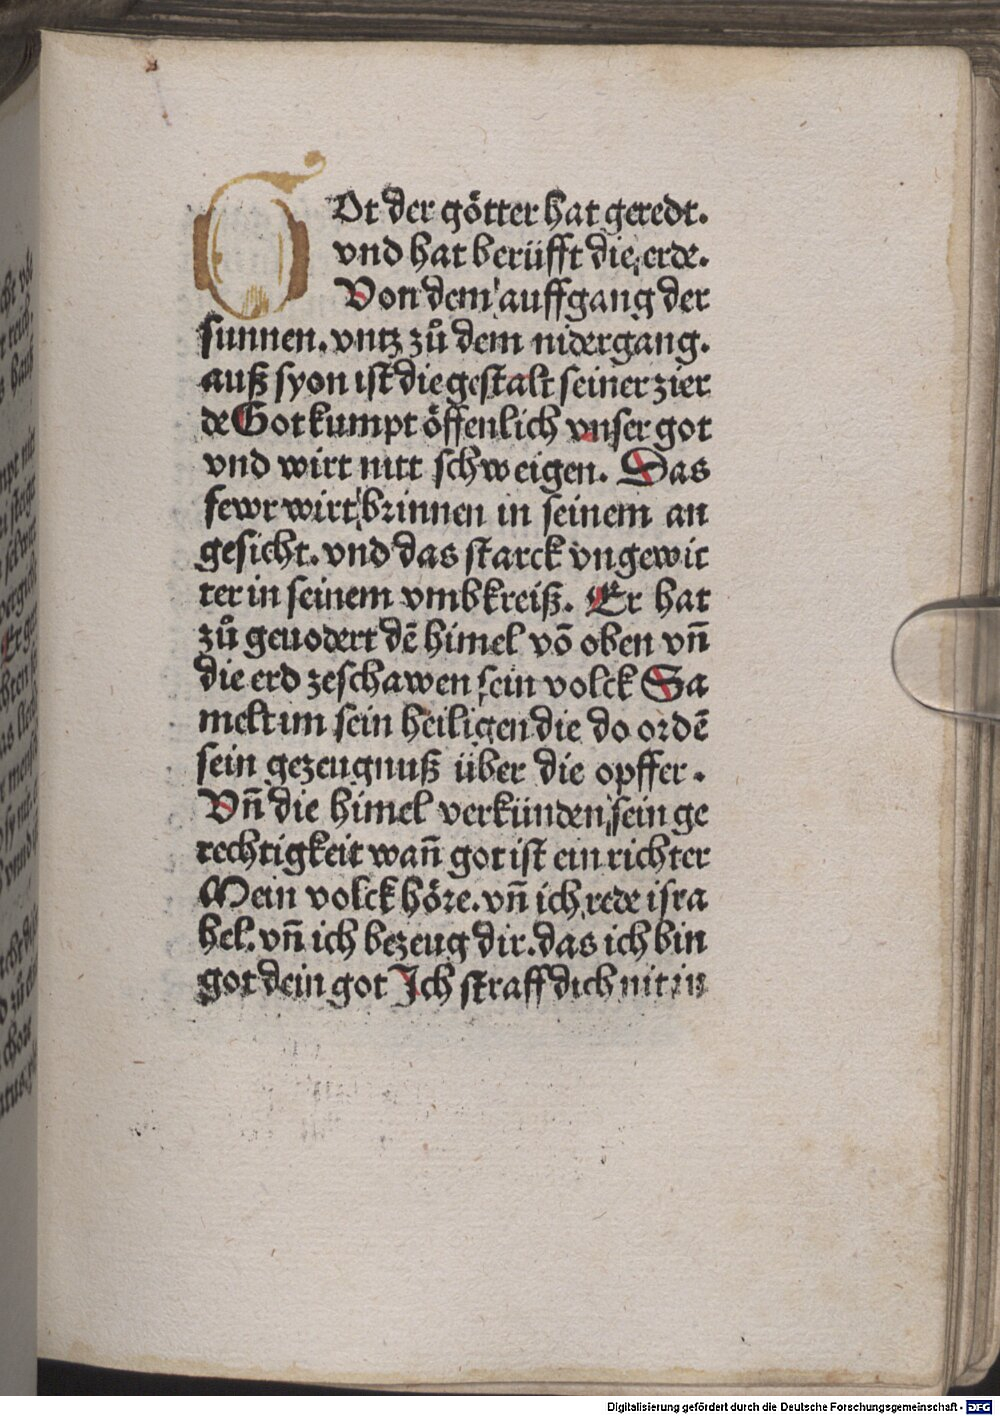 GOt der götter hat geredt.
vnd hat berüfft die erde.
Von dem auffgang der
sunnen. vntz zů dem nidergang.
auß syon ist die gestalt seiner zier
de Got kumpt öffenlich vnser got
vnd wirt nitt schweigen. Das
fewr wirt brinnen in seinem an
gesicht. vnd das starck vngewit
ter in seinem vmbkreiß. Er hat
zů geuodert dē himel vō oben vn̄
die erd zeschawen sein volck Sa
melt im sein heiligen die do ordē
sein gezeugnuß über die opffer.
Vn̄ die himel verkünden sein ge
rechtigkeit wan̄ got ist ein richter
Mein volck höre. vn̄ ich rede isra
hel. vn̄ ich bezeug dir. das ich bin
got dein got Ich straff dich nit in
Digitalisierung gefördert durch die Deutsche Forschungsgemeinschaft - DFG